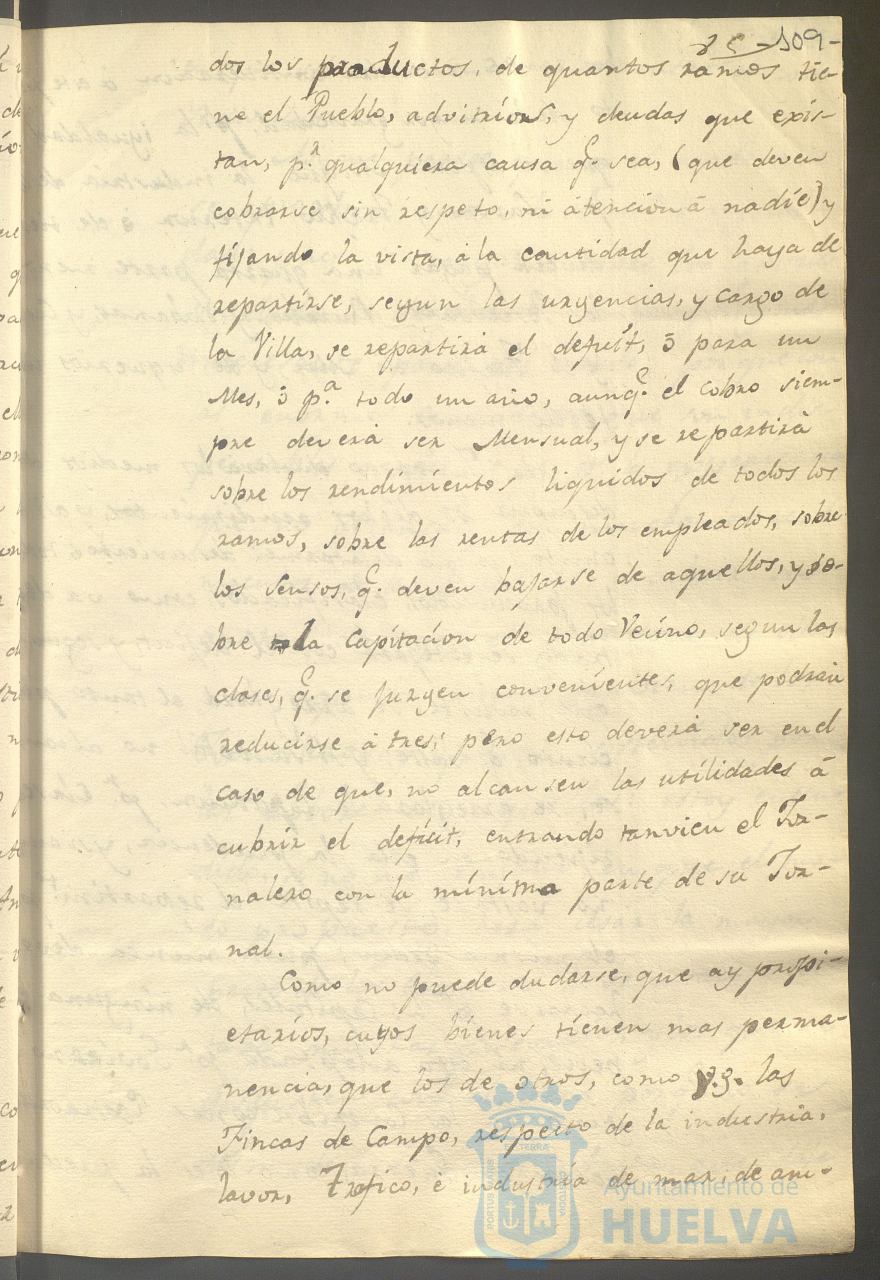 85 -109-
dos los productos, de quantos ramos tie-
ne el Pueblo, advitrios, y deudas que exis-
tan, p.r qualquiera causa q.e sea, (que deven
cobrarse sin respeto, ni atencion á nadie) y
fijando la vista, á la cantidad que haya de
repartirse, segun las urgencias, y cargo de
la Villa, se repartirá el defisit, ó para un
Mes, ó p.a todo un año, aunq.e el cobro siem-
pre deverá ser Mensual, y se repartirá
sobre los rendimientos liquidos de todos los
ramos, sobre las rentas de los empleados, sobre
los Sensos, q.e deven bajarse de aquellos, y so-
bre la Capitacion de todo Vecino, segun las
clases, q.e se juzgen convenientes, que podran
reducirse á tres; pero esto deverá ser en el
caso de que, no alcansen las utilidades á
cubrir el deficit, entrando tanvien el Jor-
nalero con la minima parte de su Jor-
nal.
Como no puede dudarse, que ay propi-
etarios, cuyos bienes tienen mas perma-
nencia, que los de otros, como v.g. las
Fincas de Campo, respecto de la industria,
lavor, Trafico, é industria de mar, de am-
PORTUS MARIS
ET TERRAE
CUSTODIA
Ayuntamiento de
HUELVA